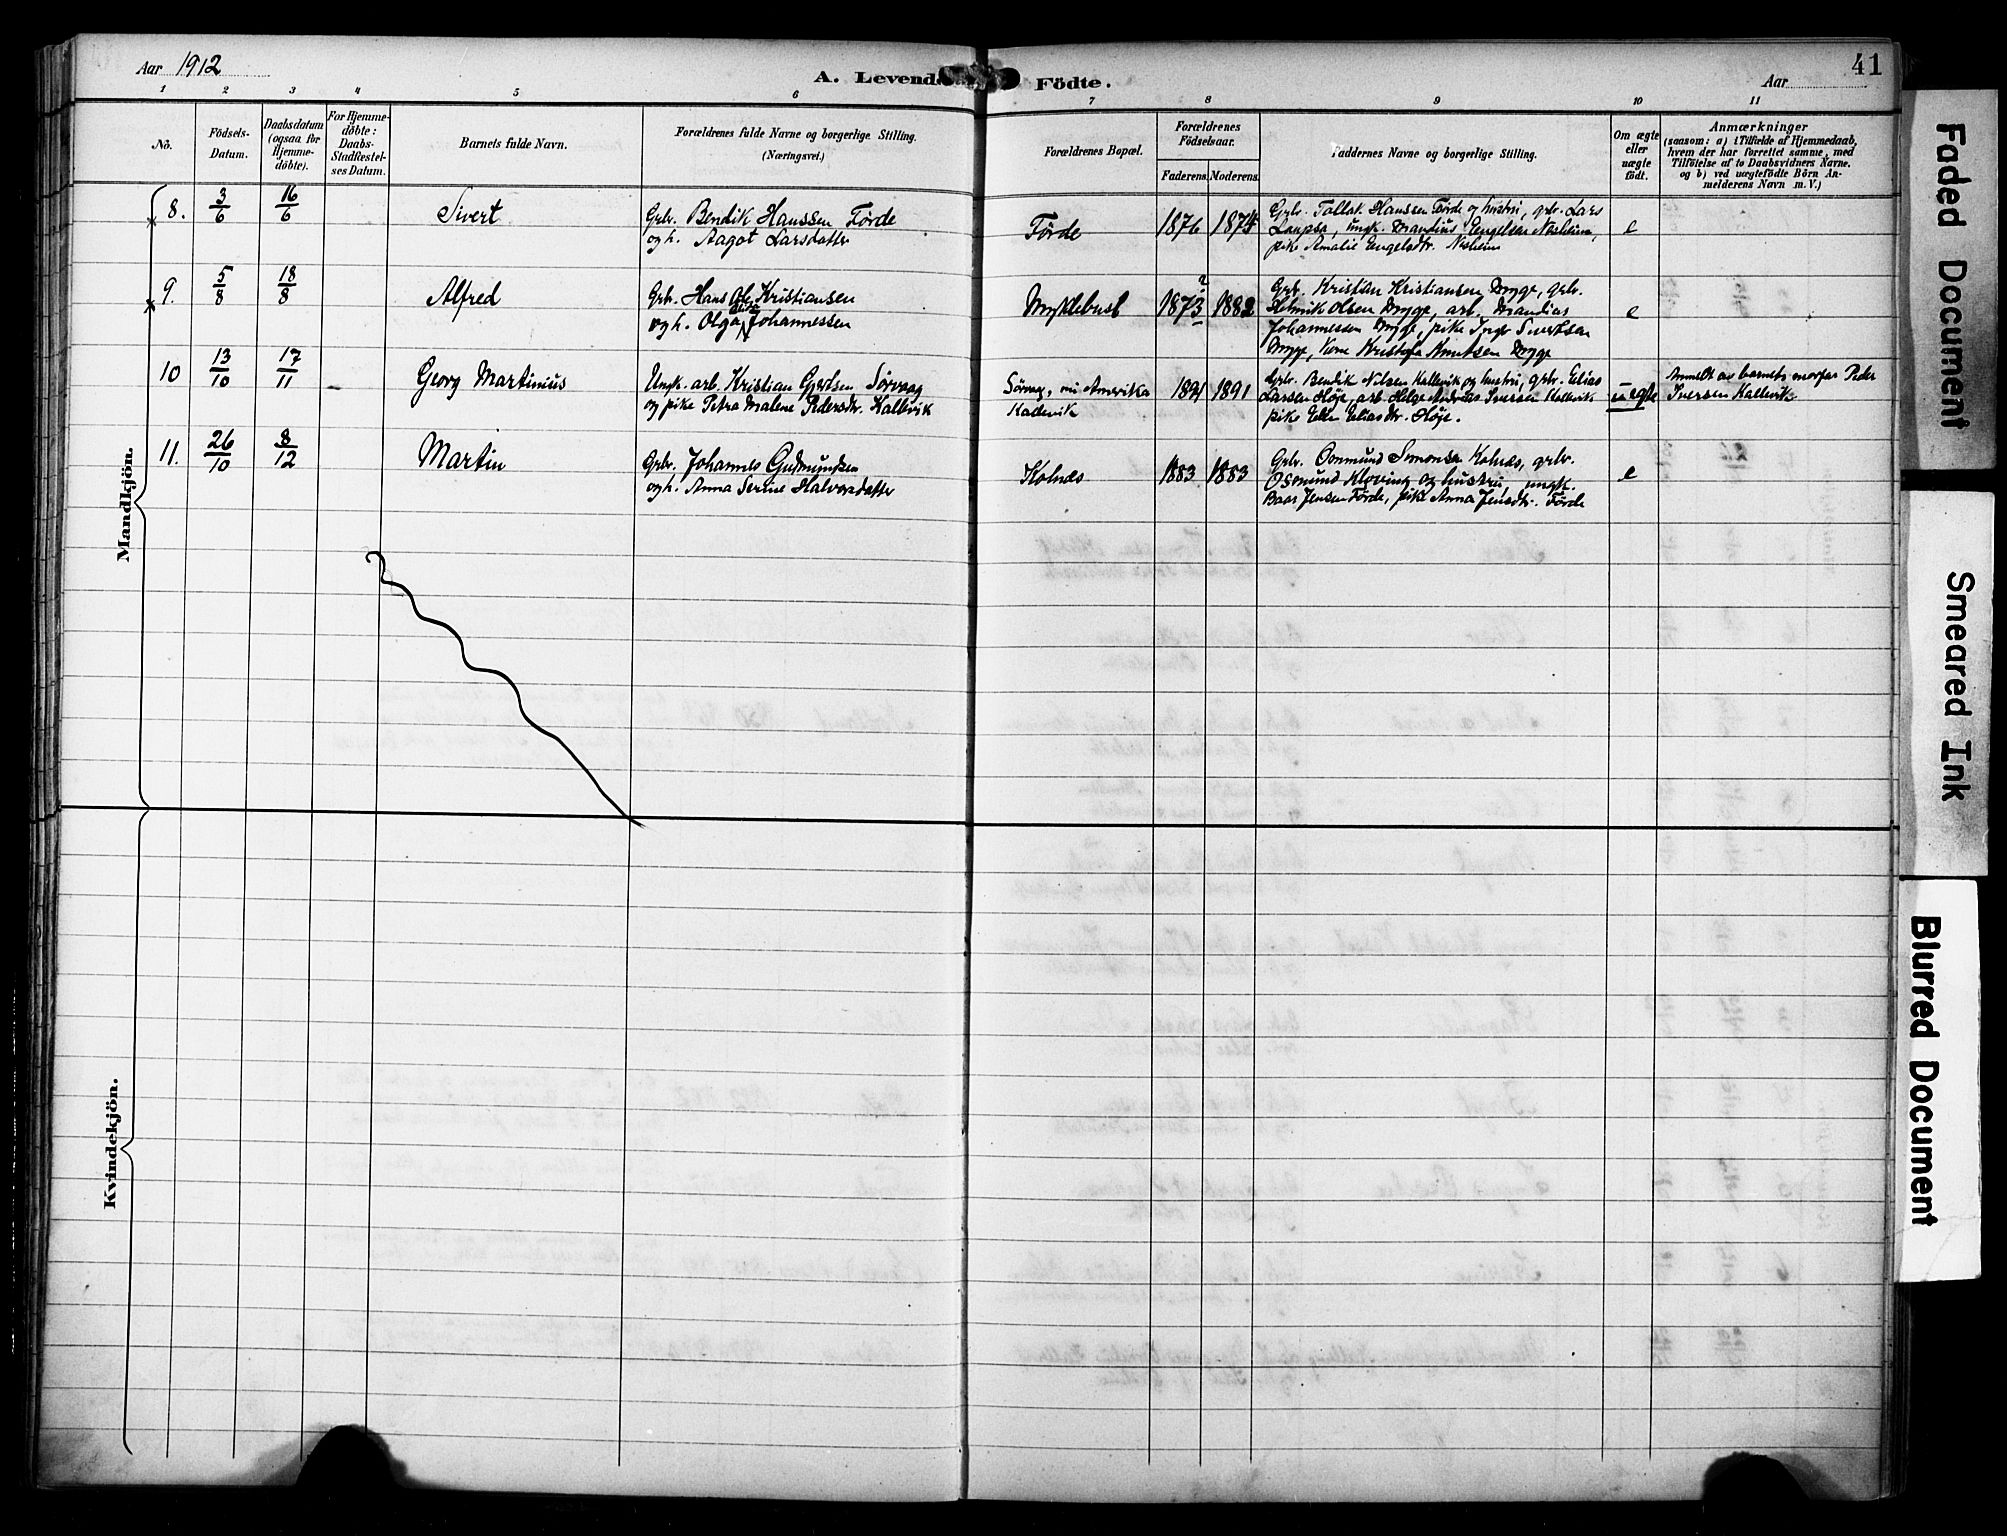 Aar 1912
A. Levende Födte.
Aar
41
1 2 3 4 5 6 7 8 9 10 11
No.
Födsels-Datum.
Daabsdatum (ogsaa for Hjemme-döbte).
For Hjemme-döbte: Daabs-Stadfestel-ses Datum.
Barnets fulde Navn.
Forældrenes fulde Navne og borgerlige Stilling.
(Næringsvei.)
Forældrenes Bopæl.
Forældrenes Födselsaar.
Faderens. Moderens.
Faddernes Navne og borgerlige Stilling.
Om ægte eller uægte födt.
Anmærkninger
(saasom: a) i Tilfælde af Hjemmedaab, hvem der har forrettet samme, med Tilföielse af to Daabsvidners Navne, og b) ved uægtefödte Börn Anmelderens Navn m. V.)
Mandkjön.
8. 3/6 16/6 Sivert
Grbr. Bendik Hanssen Førde
og h. Aagot Larsdatter
Førde 1876 1874
Grbr. Tollak Hanssen Førde og hustri, grbr. Lars
Laupsa, ungk. Mandius Engelsen Nesheim,
pike Amalie Engelsdtr. Nesheim
e
9. 5/8 18/8 Alfred
Grbr. Hans Ole Kristiansen
og h. Olga Johannessen
Myklebust 1873 ? 1882
Grbr. Kristian Kristiansen Dryge, grbr.
Helmik Olsen Dryge, arb. Mandias
Johannessen Dryge, pike Inga Sivertsen
Dryge, Kone Kristofa Knutsen Dryge
e
10 13/10 17/11 Georg Martinius
Ungk. arb. Kristian Gjertsen Sørvaag
og pike Petra Malene Pedersdtr. Kallevik
Sørvag, nu Amerika
Kallevik
1891 1891
Grbr. Bendik Nilsen Kallevik og hustri, grbr. Elias
Larsen Høje, arb. Helge Andreas Iversen Kallevik
pike Ellen Eliasdtr. Høje.
uegte
Anmeldt av barnets morfar Peder
Iversen Kallevik
11. 26/10 8/12 Martin
Grbr. Johannes Gudmundsen
og h. Anna Serine Halvorsdatter
Kolnes 1883 1883
Grbr. Osmund Simonsen Kolnes, grbr.
Osmund Kloving og hustru, ungk.
Baar Jensen Førde, pike Anna Jensdtr. Førde
e
Kvindekjön.
Faded Document
Smeared Ink
Blurred Document